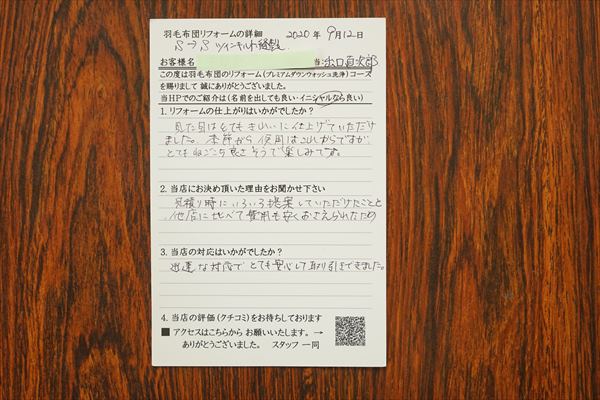 羽毛布団リフォームの詳細 2020年 9月12日
S→S ツインキルト縫製
お客様名 当:
この度は羽毛布団のリフォーム(プレミアムダウンウォッシュ洗浄)コース
を賜りまして誠にありがとうございました。
当HPでのご紹介は(名前を出しても良い・イニシャルなら良い)
1. リフォームの仕上がりはいかがでしたか?
見た目はとてもきれいに仕上げていただけ
ました。季節がら使用はこれからですが、
とてもねごこち良さそうで楽しみです。
2. 当店にお決め頂いた理由をお聞かせ下さい
見積り時にいろいろ提案していただけたことと
他店に比べて費用も安くおさえられたため
3. 当店の対応はいかがでしたか?
迅速な対応でとても安心して取り引きできました。
4. 当店の評価(クチコミ)をお待ちしております
■ アクセスはこちらから お願いいたします。→
ありがとうございました。 スタッフ 一同